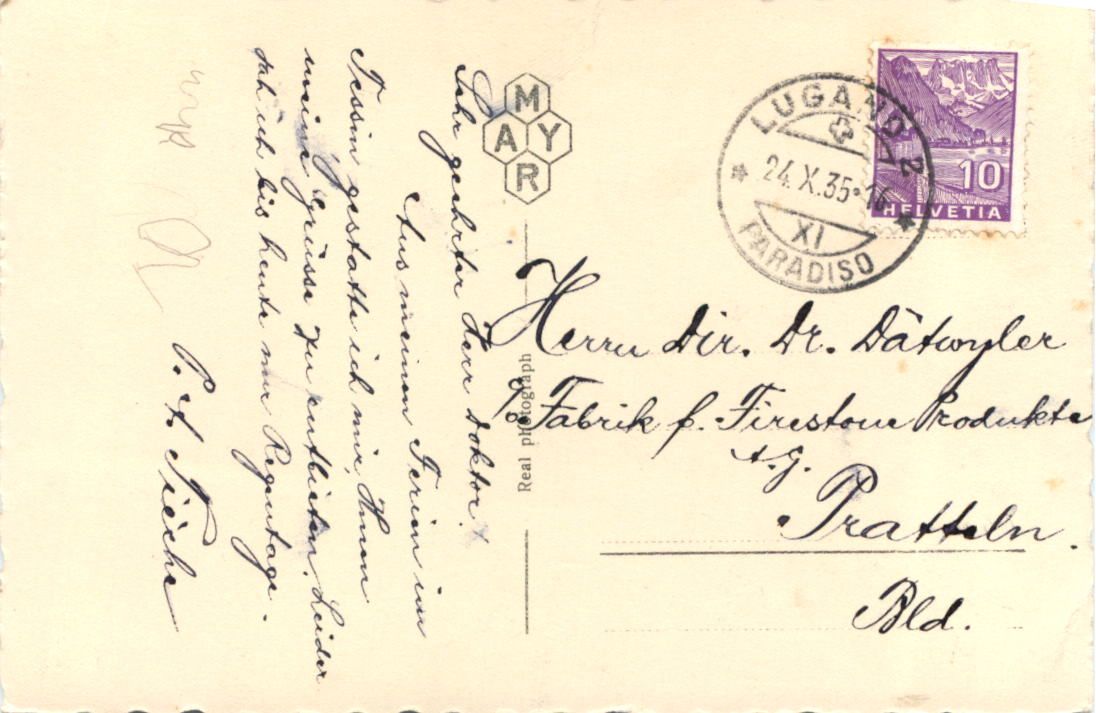 Sehr geehrter Herr Doktor!
Aus meinen Ferien im
Tessin gestatte ich mir, Ihnen
meine Grüsse zu entbieten. Leider
sah ich bis heute nur Regentage.
P. A. Tièche
M
A Y
R
Real photograph
LUGANO 2
24.X.35-14
XI
PARADISO
10
HELVETIA
Herrn Dir. Dr. Dätwyler
c/o Fabrik f. Firestone Produkte
A.G.
Pratteln.
Bld.